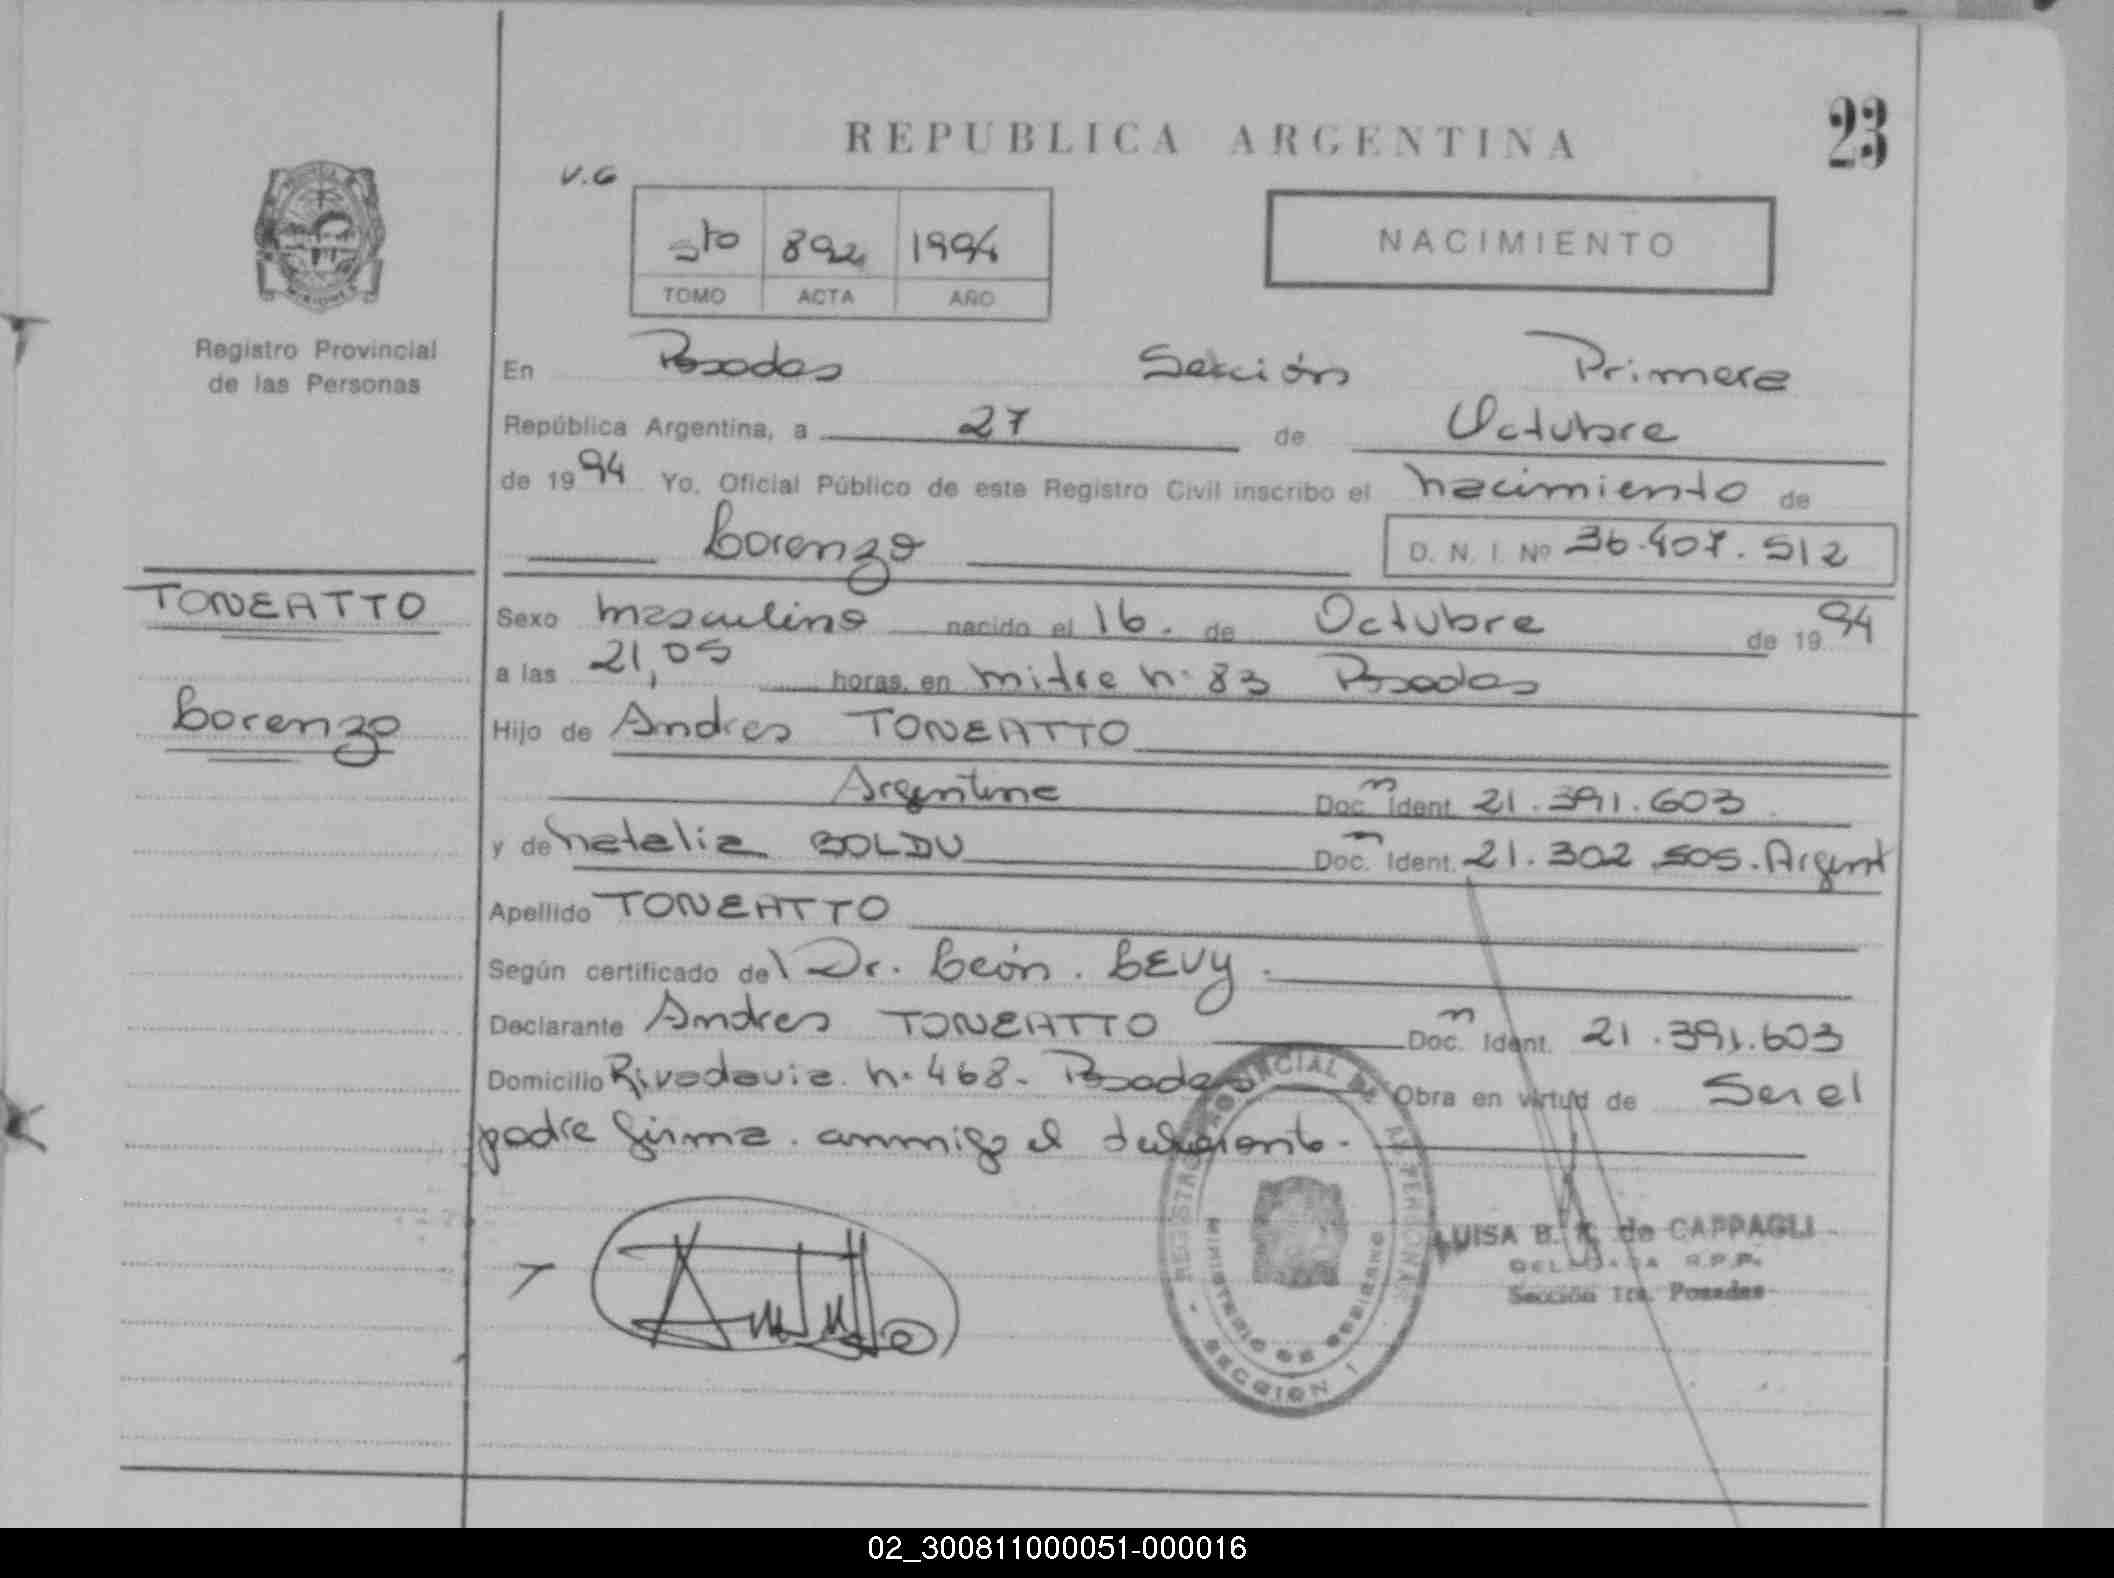 REPUBLICA ARGENTINA
23
V.G
5to 892 1994
TOMO ACTA AÑO
NACIMIENTO
Registro Provincial
de las Personas
En Posadas Sección Primera
República Argentina, a 27 de Octubre
de 1994 Yo, Oficial Público de este Registro Civil inscribo el nacimiento de
Lorenzo
D. N. I. Nº 36.407.512
TONEATTO
Lorenzo
Sexo masculino nacido el 16. de Octubre de 1994
a las 21,05 horas, en mitre n. 83 Posadas
Hijo de Andres TONEATTO
Argentino Doc. n Ident. 21.391.603
y de natalia BOLDU Doc. n Ident. 21.302.505. Argent
Apellido TONEATTO
Según certificado del Dr. León. LEVY.
Declarante Andres TONEATTO Doc. n Ident. 21.391.603
Domicilio Rivadavia n. 468. Posadas Obra en virtud de Ser el
padre firma. conmigo el declarante.
REGISTRO PROVINCIAL DE LAS PERSONAS
MINISTERIO DE GOBIERNO
SECCION I
LUISA B. de CAPPAGLI
DELEGADA R.P.P.
Sección 1ra. Posadas
02_300811000051-000016